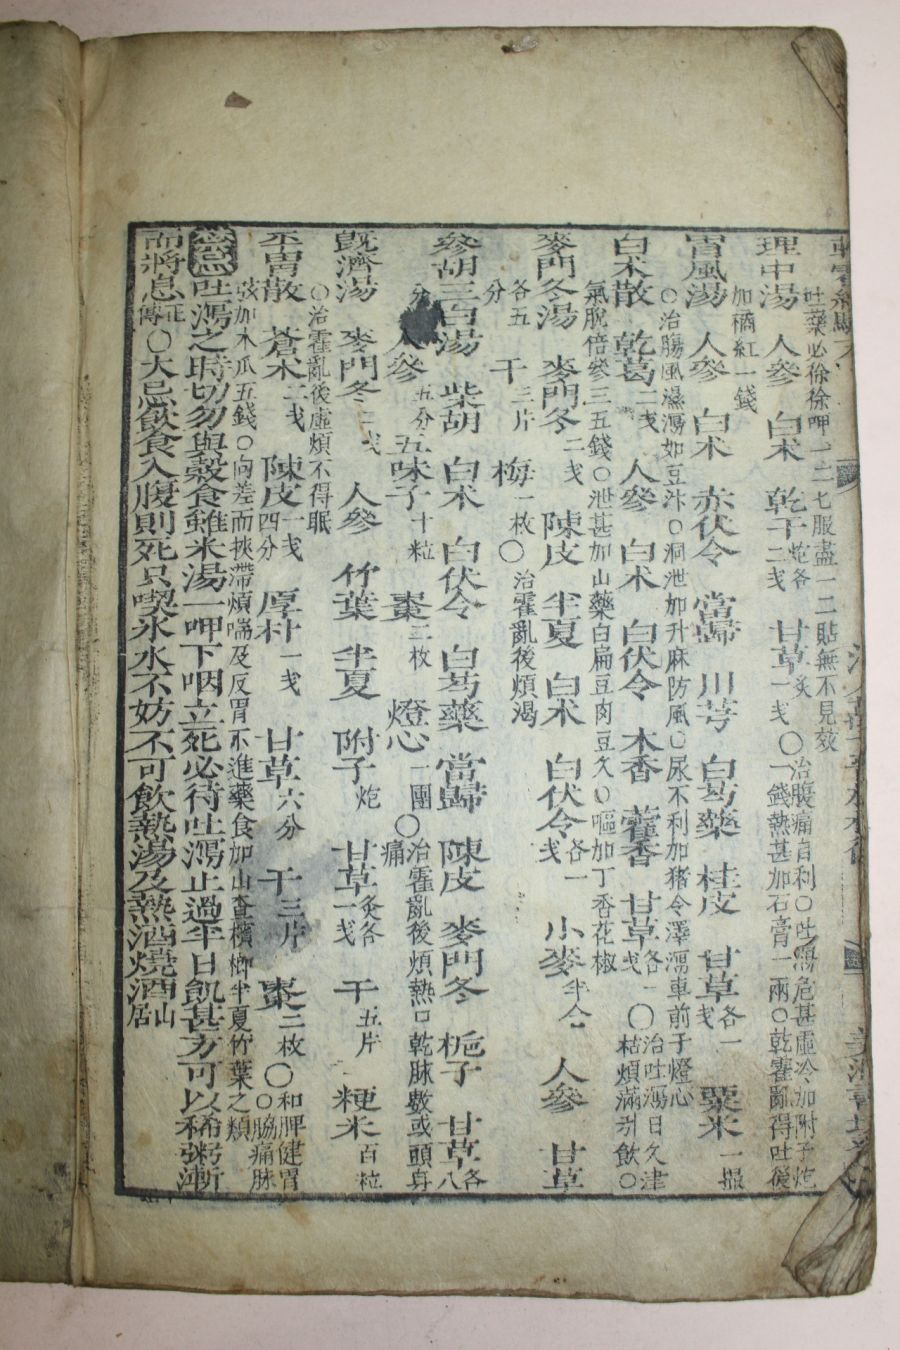 吐藥必徐徐呷一二七服盡一二貼無不見效
理中湯 人參 白朮 乾干二戋 甘草一戋灸 〇治腹痛自利〇吐瀉危甚虛冷加附子炮一錢熱甚加石膏一兩〇乾霍亂得吐後
加橘紅一錢
胃風湯 人參 白朮 赤伏令 當歸 川芎 白芍藥 桂皮 甘草各一戋 粟米一撮
〇治膓風濕瀉如豆汁〇洞泄加升麻防風〇尿不利加猪令澤瀉車前子燈心
白朮散 乾葛二戋 人參 白朮 白伏令 木香 藿香 甘草各一戋 〇治吐瀉日久津枯煩滿引飮〇
氣脫倍參三五錢〇泄甚加山藥白扁豆肉豆久〇嘔加丁香花椒
麥門冬湯 麥門冬二戋 陳皮 半夏 白朮 白伏令各一戋 小麥半合 人參 甘草
各五分 干三片 梅一枚〇治霍亂後煩渴
參胡三白湯 柴胡 白朮 白伏令 白芍藥 當歸 陳皮 麥門冬 梔子 甘草各八
分 人參五分 五味子十粒 棗二枚 燈心一團〇治霍亂後煩熱口乾脉數或頭身痛
旣濟湯 麥門冬二戋 人參 竹葉 半夏 附子炮 甘草灸各一戋 干五片 粳米百粒
〇治霍亂後虛煩不得眠
平胃散 蒼朮二戋 陳皮一戋四分 厚朴一戋 甘草六分 干三片 棗二枚〇和脾健胃〇脇痛脉
弦加木瓜五錢〇向差而挾滯煩喘及反胃不進藥食加山查檳榔半夏竹葉之類
禁忌 吐瀉之時切勿與穀食雖米湯一呷下咽立死必待吐瀉止過半日飢甚方可以稀粥漸
而將息正傳〇大忌飮食入腹則死只喫氷水不妨不可飮熱湯及熱酒燒酒山居